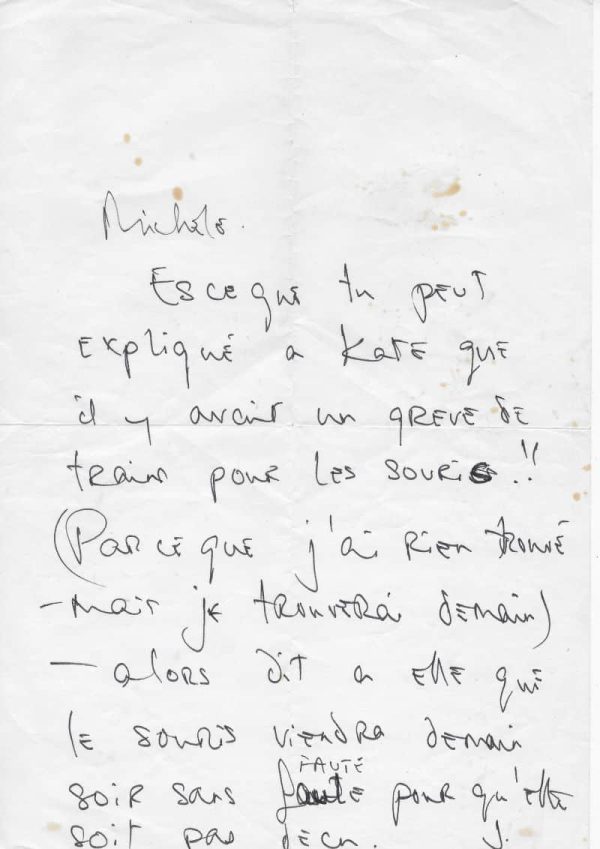 Michele.
Esceque tu peut
expliqué a Kate que
il y avait un greve de
train pour les souris !!
(Parceque j'ai rien trouvé
- mais je trouverai demain)
- alors dit a elle que
le souris viendra demain
FAUTE
soir sans faute pour qu'elle
soit pas decu. J.